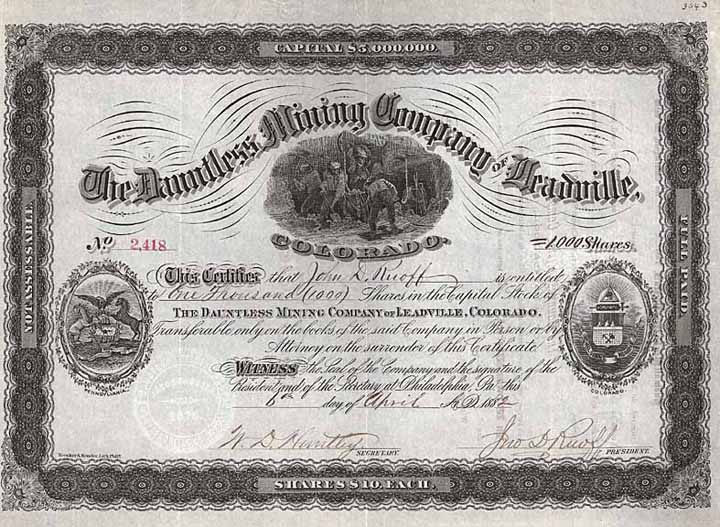 3043
CAPITAL $5,000,000.
The Dauntless Mining Company of Leadville,
COLORADO.
No 2,418
=1,000 Shares
This Certifies that John D. Ruoff is entitled
to One Thousand (1000) Shares in the Capital Stock of
THE DAUNTLESS MINING COMPANY OF LEADVILLE, COLORADO.
Transferable only on the books of the said Company in Person or by
Attorney on the surrender of this Certificate.
WITNESS the Seal of the Company and the signature of the
President and of the Secretary at Philadelphia, Pa. this
6th day of April A.D. 1882
W. D. Huntley
SECRETARY.
Jno D. Ruoff
PRESIDENT.
NOT ASSESSABLE
FULL PAID
PENNSYLVANIA.
COLORADO.
SHARES $10. EACH.